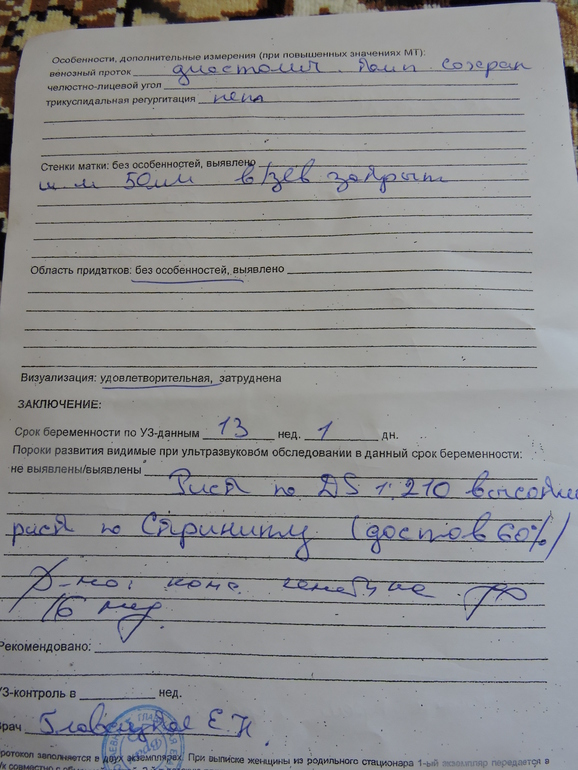 Особенности, дополнительные измерения (при повышенных значениях МТ):
венозный проток диастолич. комп сохран
челюстно-лицевой угол
трикуспидальная регургитация нет
Стенки матки: без особенностей, выявлено
ш.м 50мм в/зев закрыт
Область придатков: без особенностей, выявлено
Визуализация: удовлетворительная, затруднена
ЗАКЛЮЧЕНИЕ:
Срок беременности по УЗ-данным 13 нед. 1 дн.
Пороки развития видимые при ультразвуковом обследовании в данный срок беременности:
не выявлены/выявлены
Риск по DS 1:210 высокий
риск по Скринингу (достов 60%)
конс генетика до
16 нед.
Рекомендовано:
УЗ-контроль в нед.
Врач Е.Н
протокол заполняется в двух экземплярах. При выписке женщины из родильного стационара 1-ый экземпляр передается в